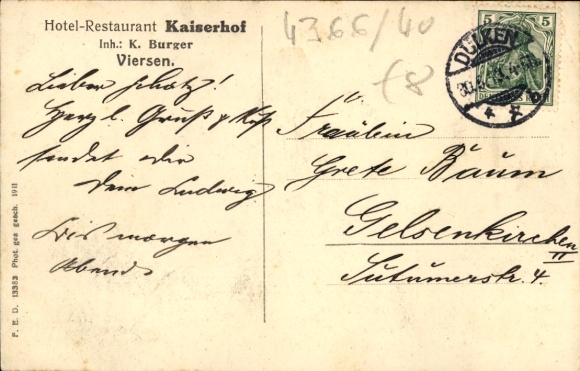 Hotel-Restaurant Kaiserhof
Inh.: K. Burger
Viersen.
4366/40
f8
5 5
DÜLKEN
Lieber Schatz!
Herzl. Gruß & Kuß
sendet dir
Dein Ludwig
Bis morgen
Abend
Fräulein
Grete Baum
Gelsenkirchen
II
Sutumerstr. 4.
F. E. D. 13383 Phot. ges gesch. 1911